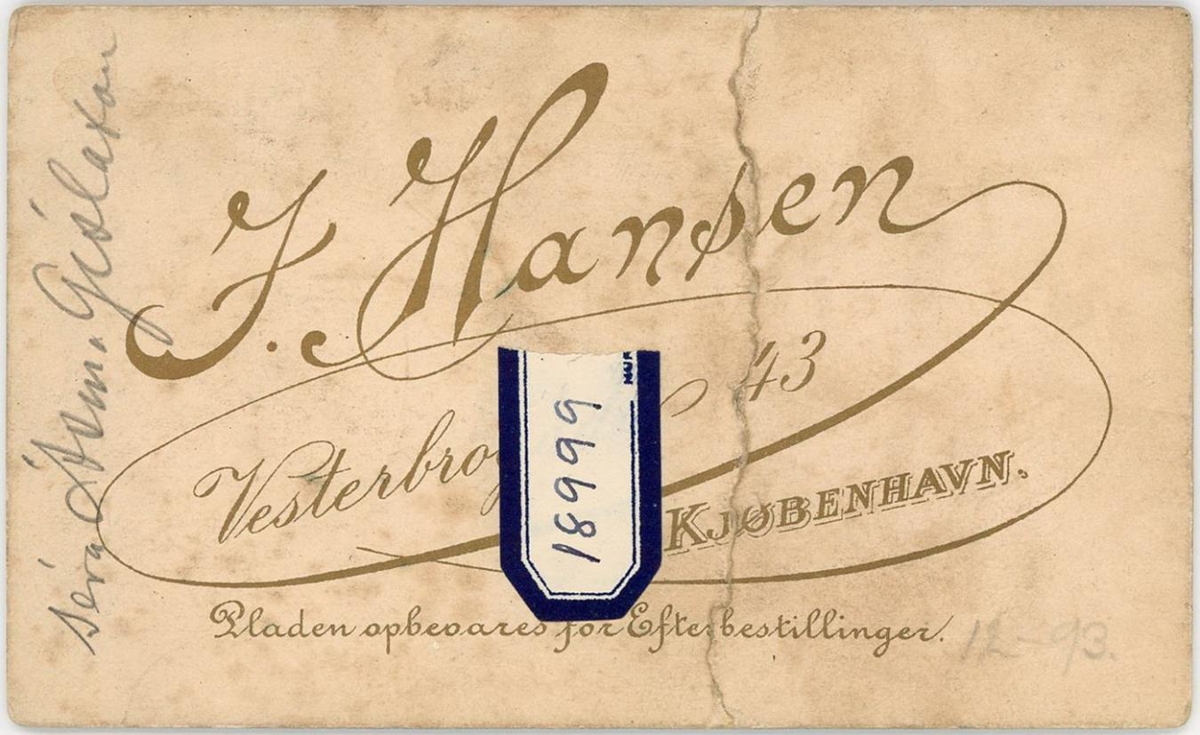 J. Hansen
Vesterbrog 43
KJØBENHAVN.
Pladen opbevares for Efterbestillinger.
18999
séra Gíslason
12-93.